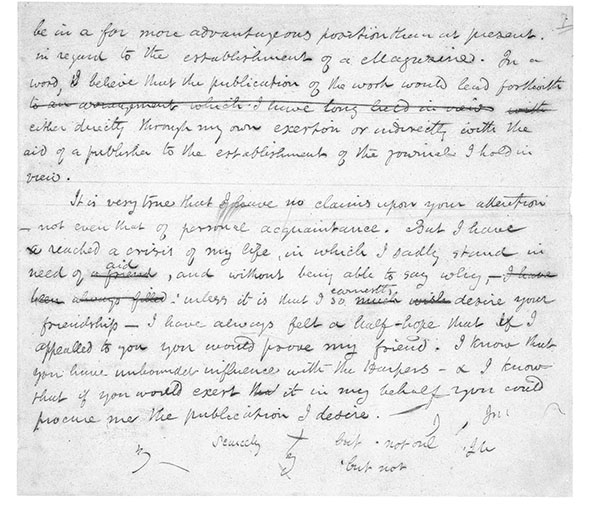 be in a far more advantageous position than at present.
in regard to the establishment of a Magazine. In a
word, I believe that the publication of the work would lead forthwith
to an arrangment which I have long held in view with
either directly through my own exertion or indirectly with the
aid of a publisher to the establishment of the journal I hold in
view.
It is very true that I have no claims upon your attention
— not even that of personal acquaintance. But I have
a reached a crisis of my life, in which I sadly stand in
aid
need of a friend, and without being able to say why, — I have
earnestly
been always filled : unless it is that I so much wish desire your
friendship — I have always felt a half-hope that if I
appealled to you you would prove my friend. I know that
you have unbounded influence with the Harpers — & I know
that if you would exert that it in my behalf you could
procure me the publication I desire. —
Scarcely but not
but not